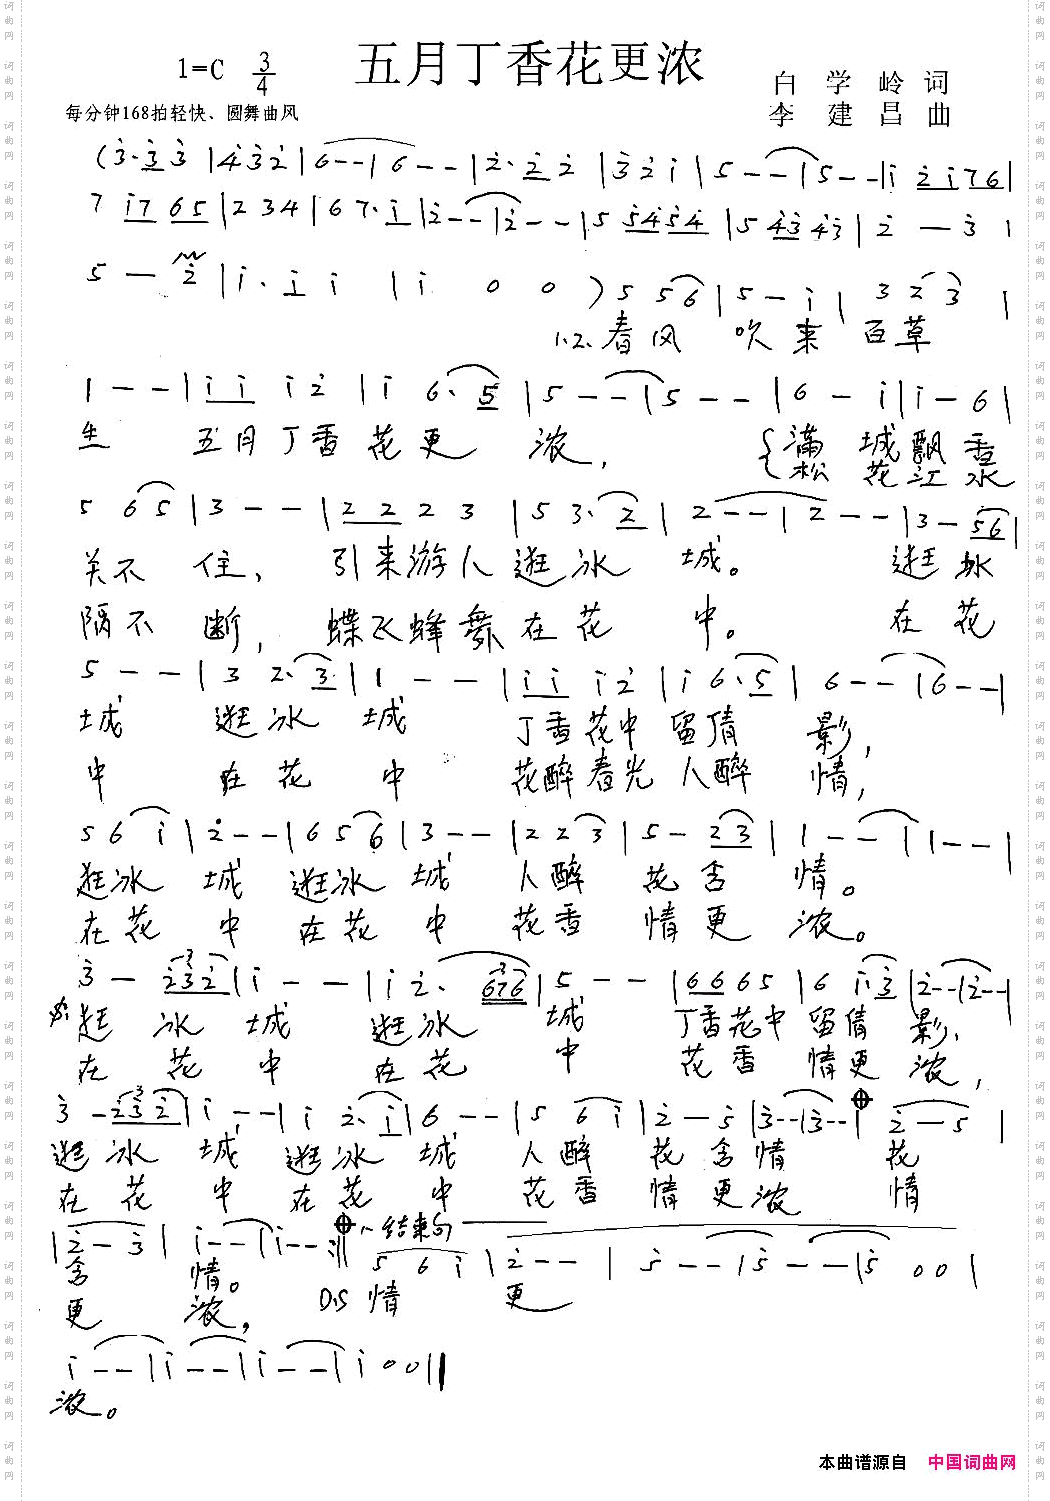 五月丁香花更浓
1=C 3/4
白 学 岭 词
每分钟168拍轻快、圆舞曲风
李 建 昌 曲
(3·3 3 |4 3 2 |6 - - |6 - - |2· 2 2 |3 2 i |5 - - |5 - - |i 2 i 7 6 |
7 i 7 6 5 |2 3 4 |6 7· i |2 - - |2 - - |5 5 4 5 4 |5 4 3 4 3 |2 - 3 |
5 - 2 |i· i i |i 0 0 ) 5 5 6 |5 - i | 3 2 3 |
1.2.春 风 吹 来 百 草
1 - - |i i i 2 |i 6· 5 |5 - - |5 - - |6 - i |i - 6 |
生 五 月 丁 香 花 更 浓, {满 城 飘 香
松 花 江 水
5 6 5 |3 - - |2 2 2 3 |5 3· 2 |2 - - |2 - - |3 - 5 6 |
关 不 住, 引 来 游 人 逛 冰 城。 逛 冰
隔 不 断, 蝶 飞 蜂 舞 在 花 中。 在 花
5 - - |3 2· 3 |1 - - |i i i 2 |i 6· 5 |6 - - |6 - - |
城 逛 冰 城 丁 香 花 中 留 倩 影,
中 在 花 中 花 醉 春 光 人 醉 情,
5 6 i |2 - - |6 5 6 |3 - - |2 2 3 |5 - 2 3 |1 - - |1 - - |
逛 冰 城 逛 冰 城 人 醉 花 含 情。
在 花 中 在 花 中 花 香 情 更 浓。
3 - 2 3 2 |i - - |i 2· 6 7 6 |5 - - |6 6 6 5 |6 i· 3 |2 - - |2 - - |
逛 冰 城 逛 冰 城 丁 香 花 中 留 倩 影,
在 花 中 在 花 中 花 香 情 更 浓,
3 - 2 3 2 |i - - |i 2· i |6 - - |5 6 i |2 - 5 |3 - - |3 - - |2 - 5 |
逛 冰 城 逛 冰 城 人 醉 花 含 情 花
在 花 中 在 花 中 花 香 情 更 浓 情
|2 - 3 |i - - |i - - :|| 结束句 5 6 i |2 - - |5 - - |5 - - |5 0 0 |
含 情。
更 浓, D.S 情 更
i - - |i - - |i - - |i 0 0 ||
浓。
本曲谱源自 中国词曲网